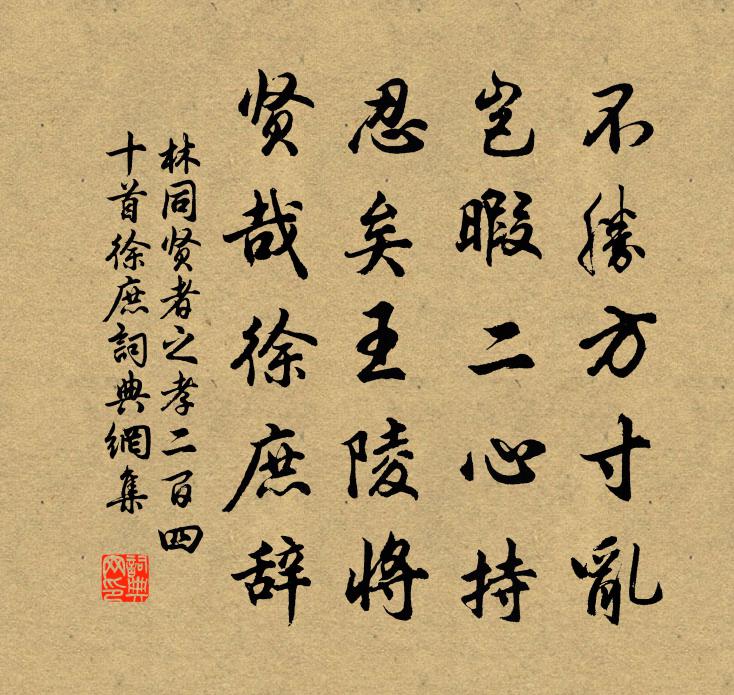 不勝方寸亂
豈暇二心持
忍矣王陵將
贤哉徐庶辞
林同贤者之孝二百四
十首徐庶詞典網集
詞典
网印